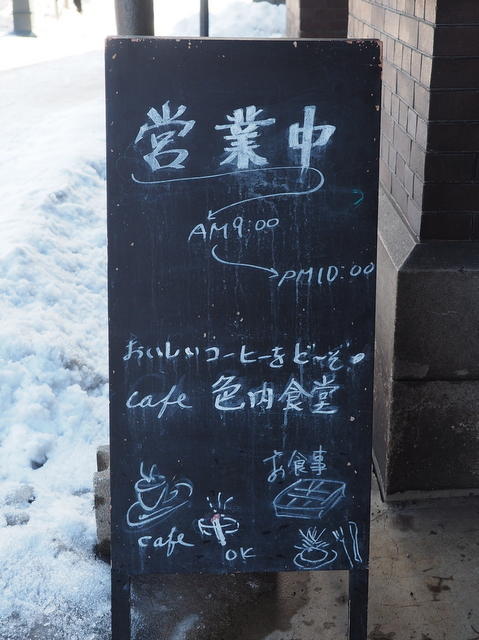 営業中
AM9:00
PM10:00
おいしいコーヒーをど〜ぞ
cafe 色内食堂
お食事
cafe
OK